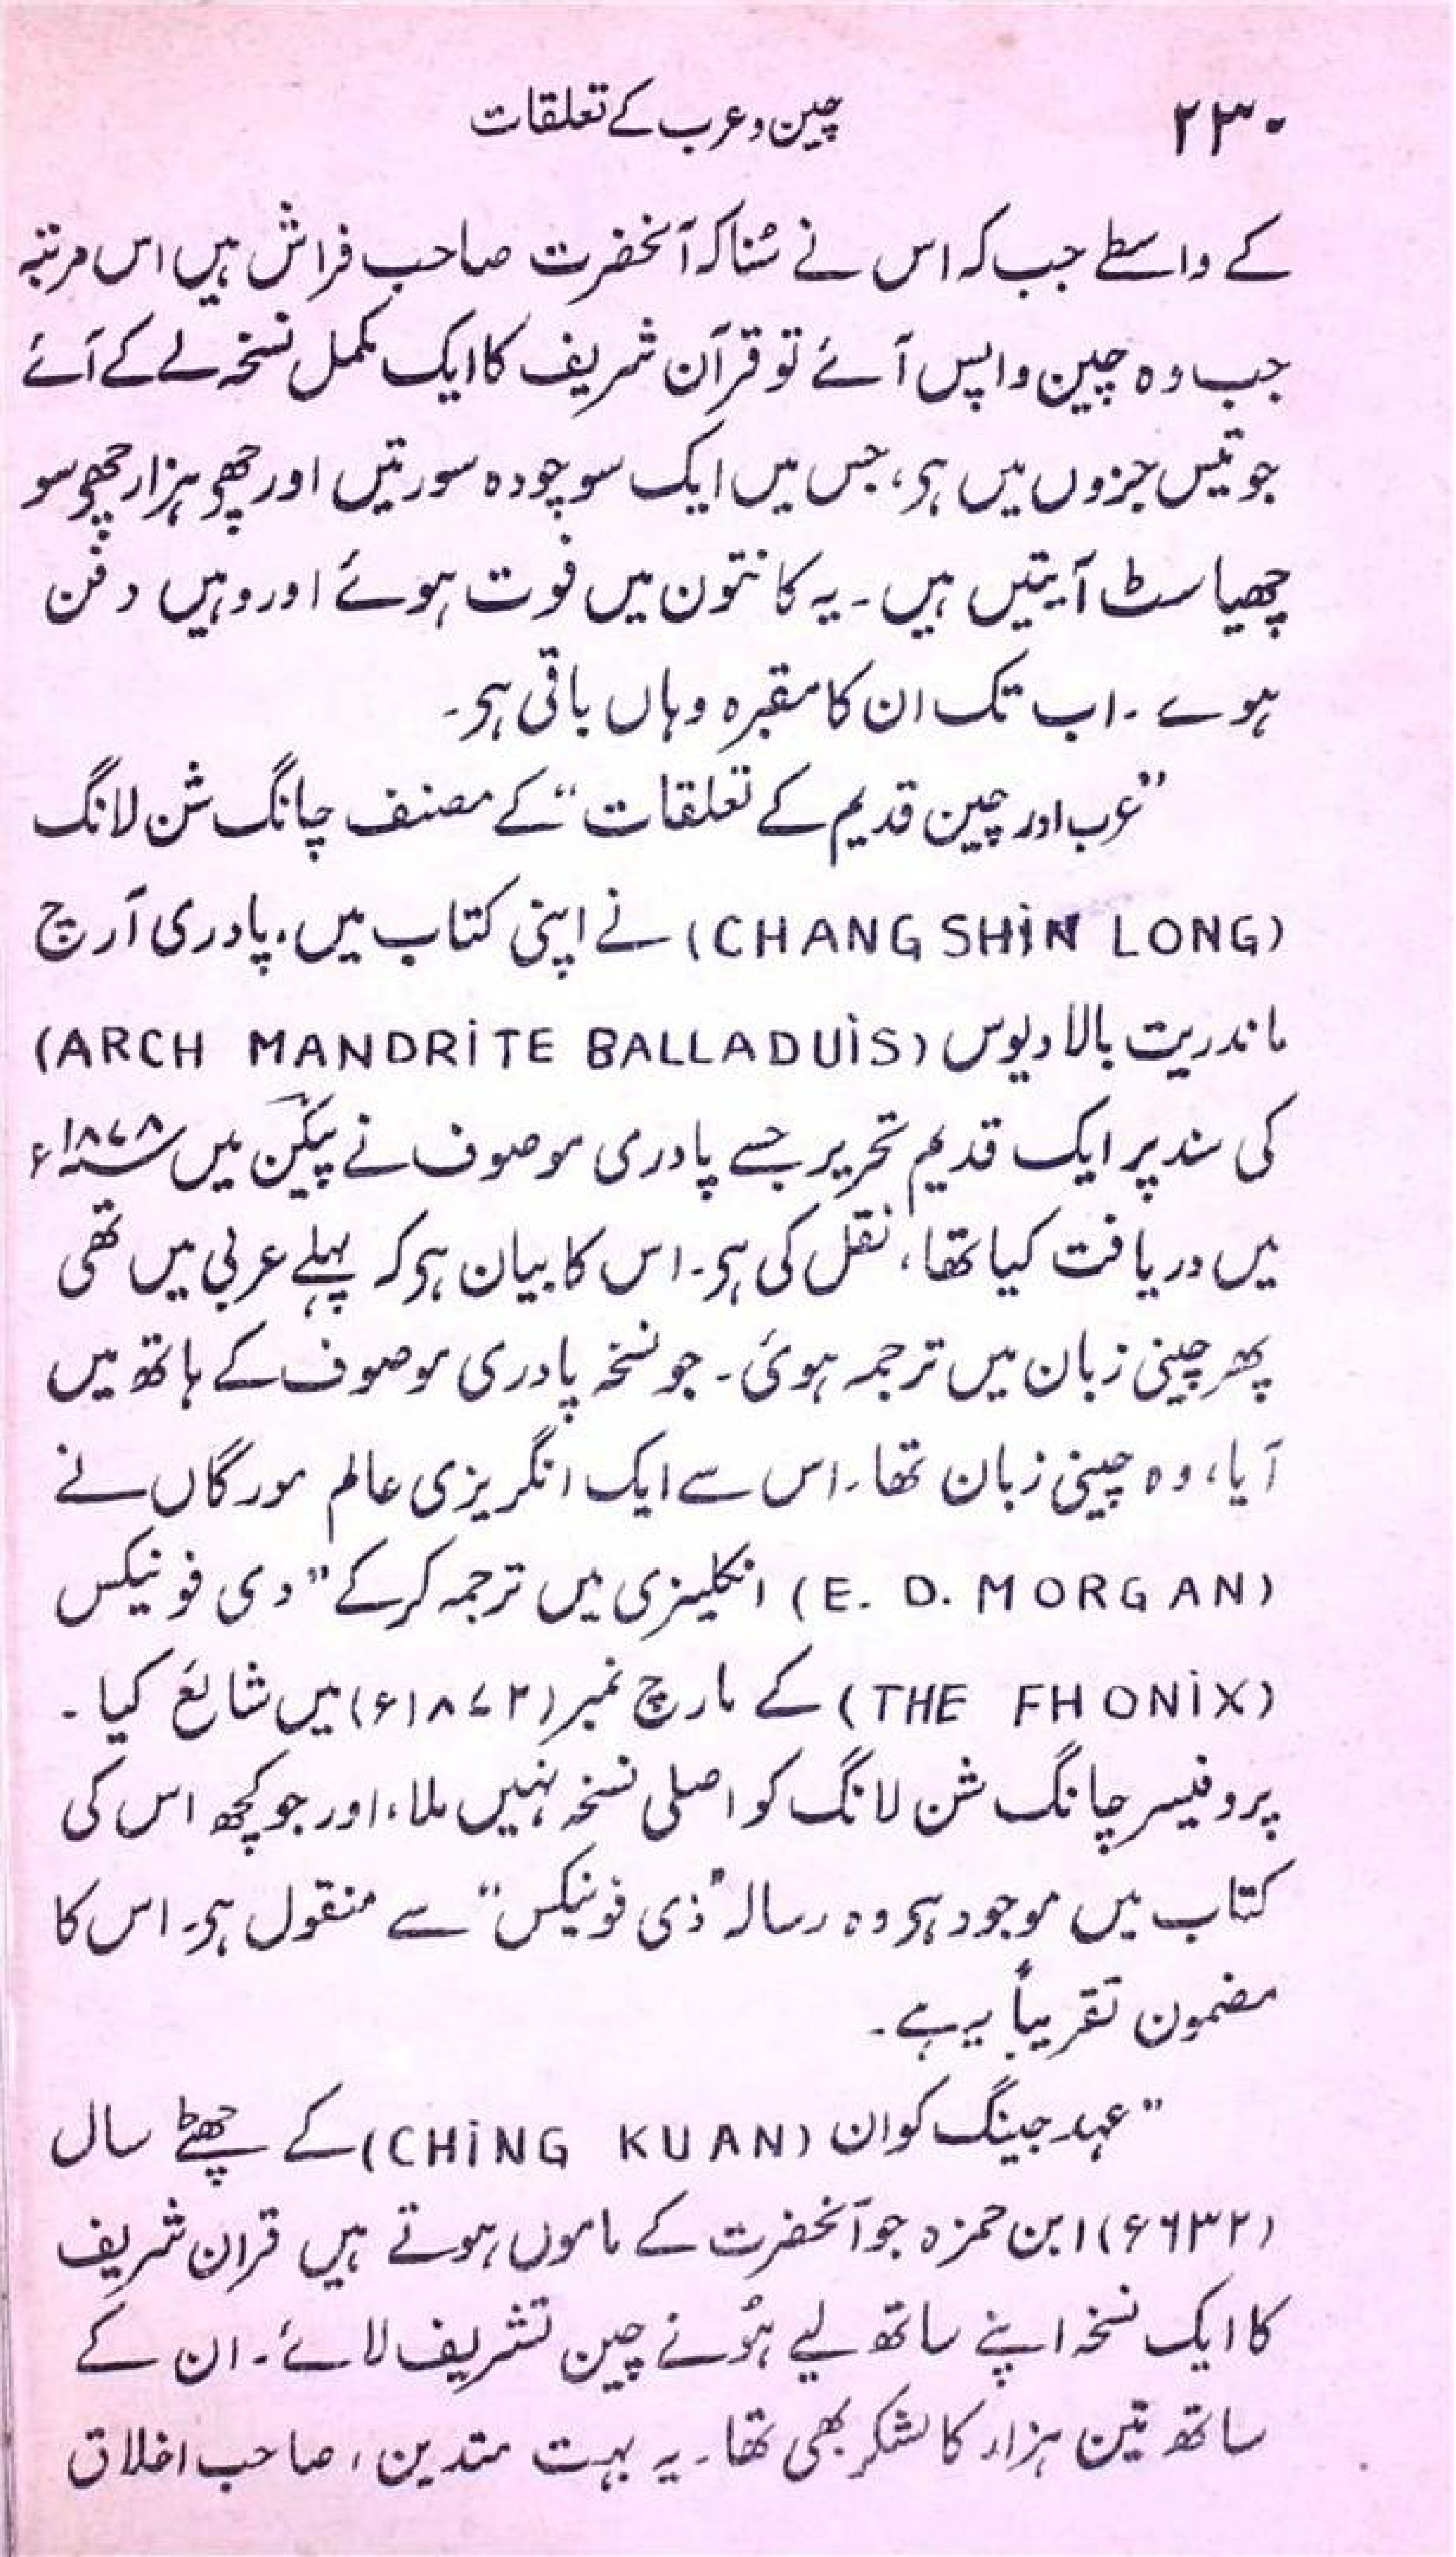 ۲۳۰ چین و عرب کے تعلقات
کے واسطے جب کہ اس نے سُنا کہ آنحضرت صاحب فراش ہیں اس مرتبہ
جب وہ چین واپس آئے تو قرآن شریف کا ایک مکمل نسخہ لے کے آئے
جو تیس جزوں میں ہی، جس میں ایک سو چودہ سورتیں اور چھ ہزار چھ سو
چھیاسٹ آیتیں ہیں۔ یہ کانتون میں فوت ہوئے اور وہیں دفن
ہوے۔ اب تک ان کا مقبرہ وہاں باقی ہی۔
”عرب اور چین قدیم کے تعلقات“ کے مصنف چانگ شن لانگ
(CHANG SHiN LONG) نے اپنی کتاب میں، پادری آرچ
ماندریت بالادیوس (ARCH MANDRiTE BALLADUiS)
کی سند پر ایک قدیم تحریر جسے پادری موصوف نے پیکن میں ۱۸۷۸ء
میں دریافت کیا تھا، نقل کی ہی۔ اس کا بیان ہی کہ پہلے عربی میں تھی
پھر چینی زبان میں ترجمہ ہوئی۔ جو نسخہ پادری موصوف کے ہاتھ میں
آیا، وہ چینی زبان تھا۔ اس سے ایک انگریزی عالم مورگاں نے
(E. D. MORGAN) انکلیزی میں ترجمہ کرکے ”دی فونیکس
(THE FHONiX) کے مارچ نمبر (۱۸۷۲ء) میں شائع کیا۔
پروفیسر چانگ شن لانگ کو اصلی نسخہ نہیں ملا، اور جو کچھ اس کی
کتاب میں موجود ہی وہ رسالہ ”ذی فونیکس“ سے منقول ہی۔ اس کا
مضمون تقریباً یہ ہے۔
”عہد جینگ کوان (CHiNG KUAN) کے چھٹے سال
(۶۳۲ء) ابن حمزہ جو آنحضرت کے ماموں ہوتے ہیں قران شریف
کا ایک نسخہ اپنے ساتھ لیے ہُوئے چین تشریف لائے۔ ان کے
ساتھ تین ہزار کا لشکر بھی تھا۔ یہ بہت متدین، صاحب اخلاق